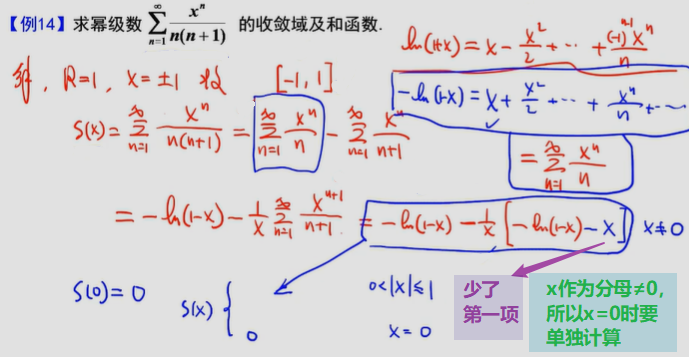 【例14】求幂级数 $\sum_{n=1}^{\infty} \frac{x^n}{n(n+1)}$ 的收敛域及和函数.
ln(1+x) = x - \frac{x^2}{2} + ⋯ + \frac{(-1)^{n-1} x^n}{n}
解, R=1, x=±1 收 [-1, 1]
-ln(1-x) = x + \frac{x^2}{2} + ⋯ + \frac{x^n}{n} + ⋯
S(x) = \sum_{n=1}^{\infty} \frac{x^n}{n(n+1)} = \sum_{n=1}^{\infty} \frac{x^n}{n} - \sum_{n=1}^{\infty} \frac{x^n}{n+1}
= \sum_{n=1}^{\infty} \frac{x^n}{n}
= -ln(1-x) - \frac{1}{x} \sum_{n=1}^{\infty} \frac{x^{n+1}}{n+1} = -ln(1-x) - \frac{1}{x} [-ln(1-x) - x] x≠0
S(0) = 0
S(x) {
0<|x|≤1
0 x=0
少了
第一项
x作为分母≠0,
所以x=0时要
单独计算